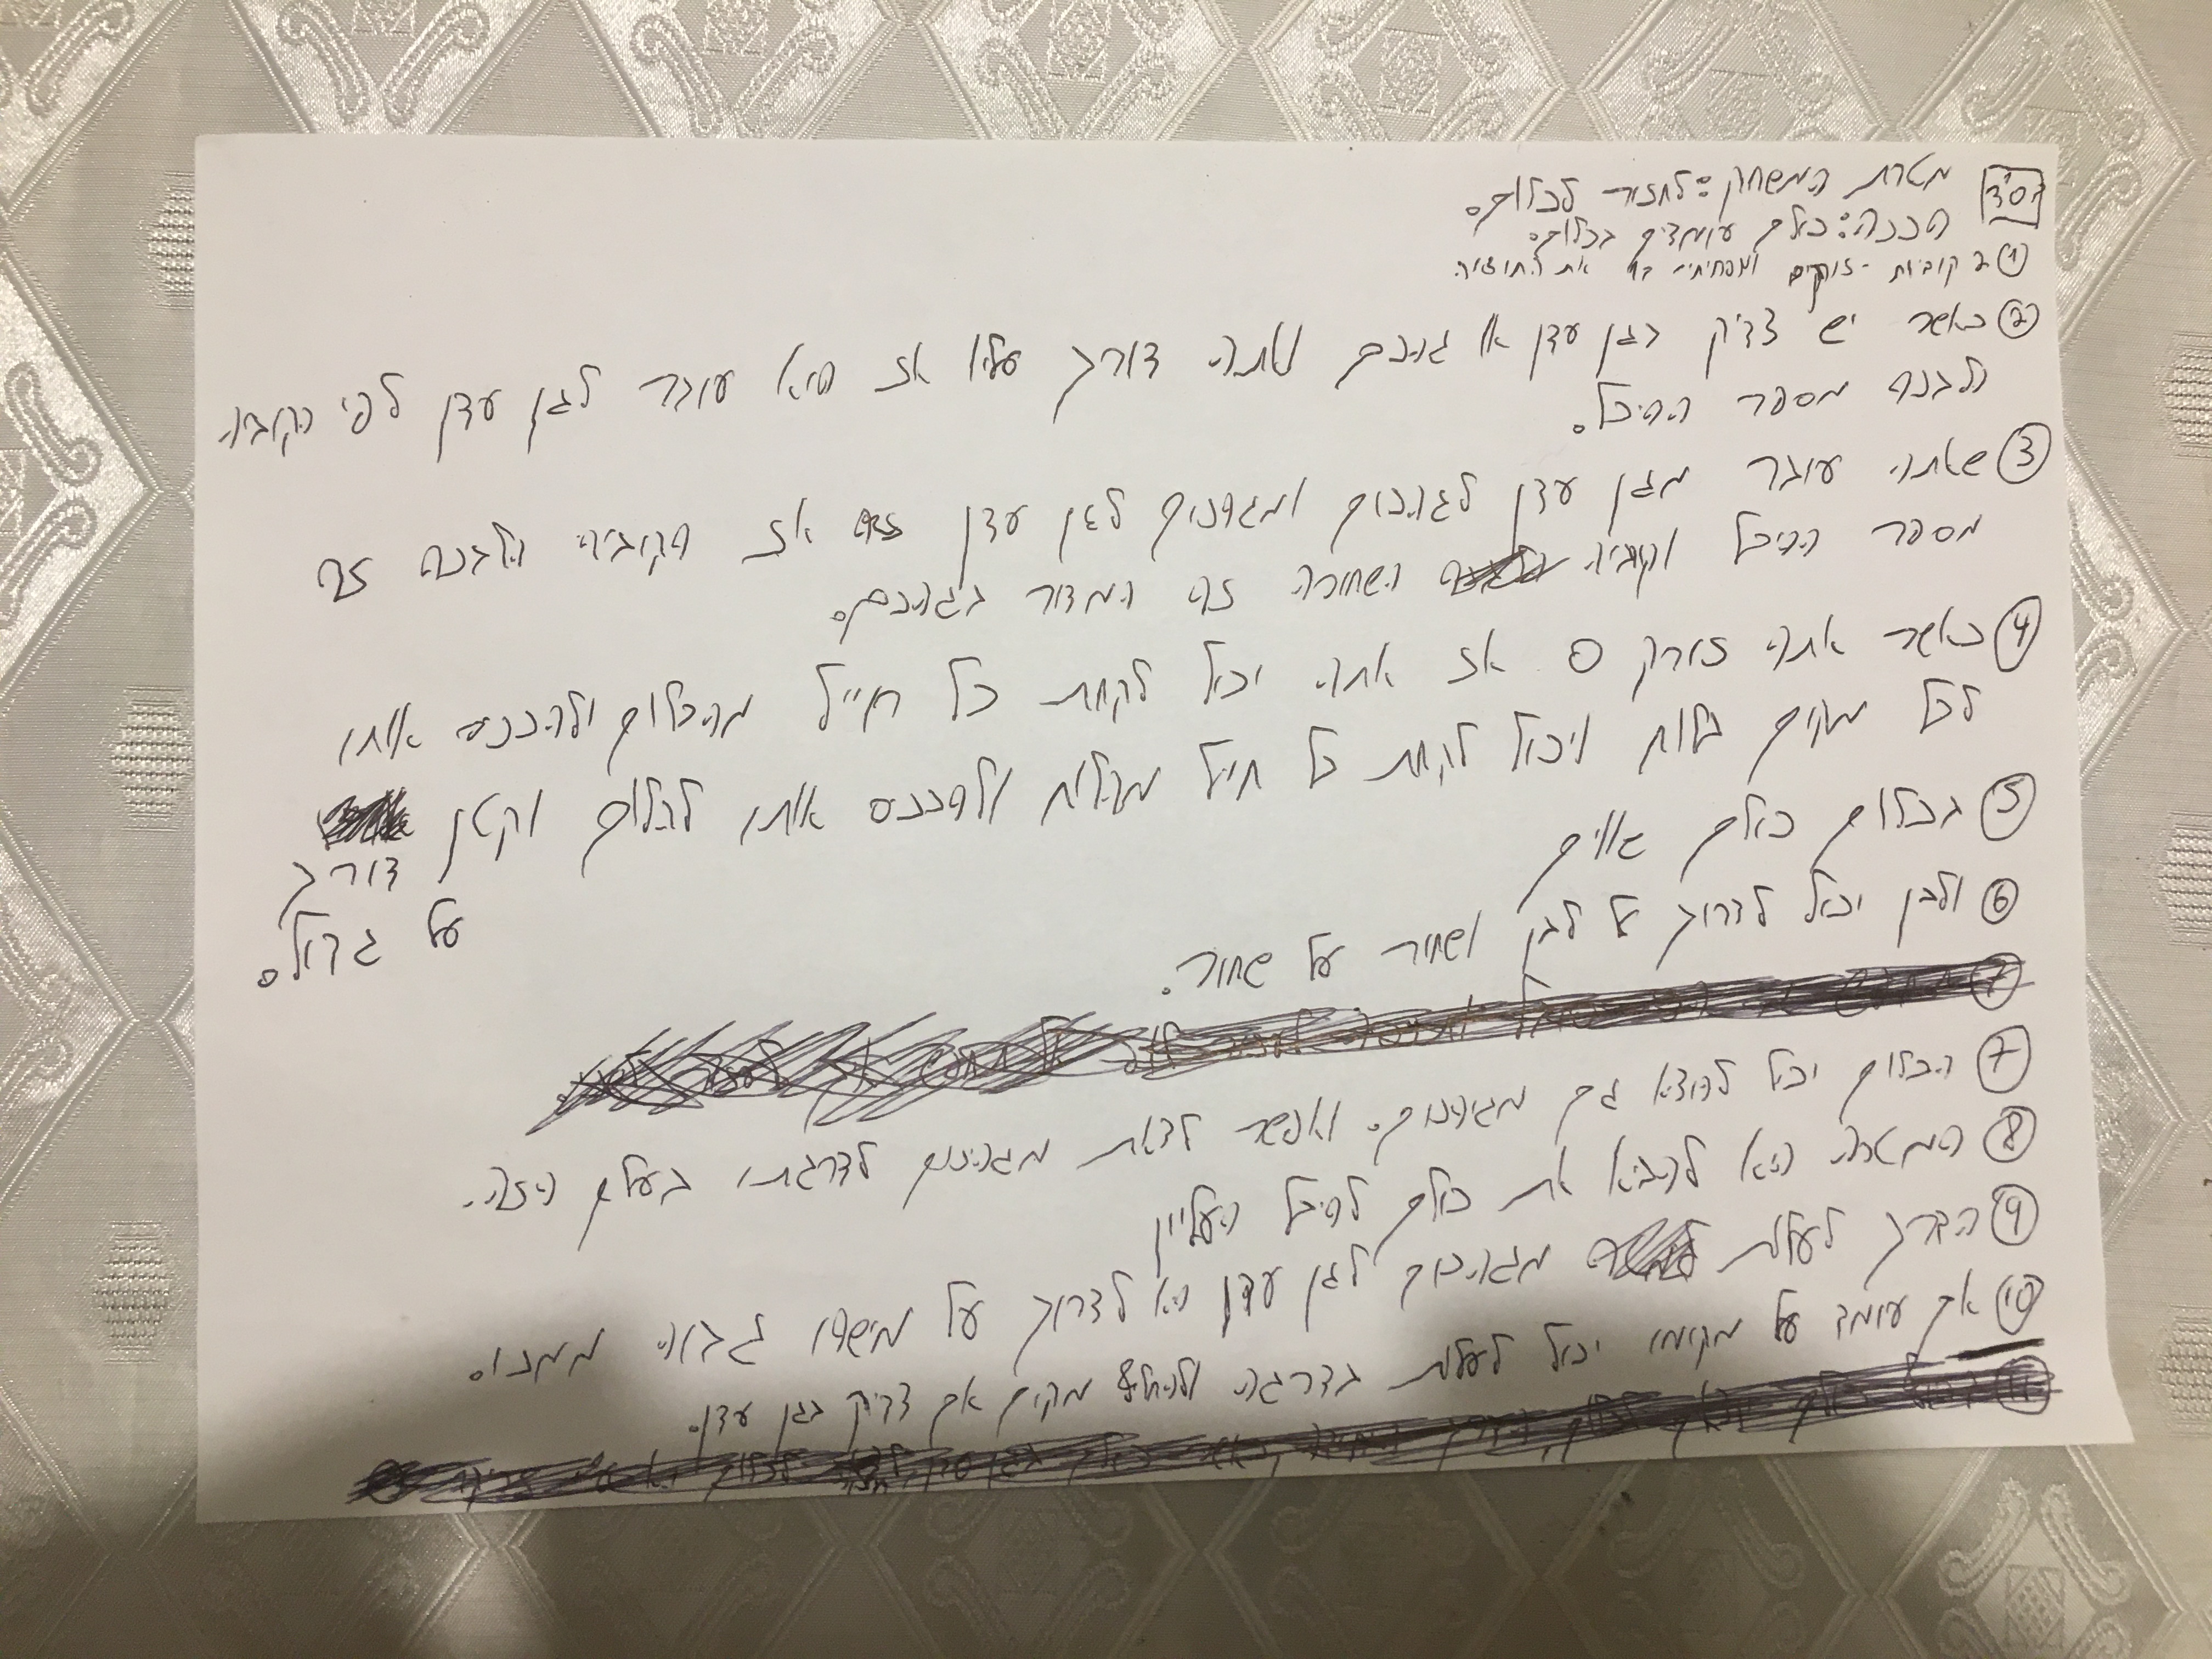 בס"ד
מטרת המשחק: לחזור לכלום.
הכנה: כולם עומדים בכלום.
① 2 קוביות - זורקים ומפחיתים את התוצאה
② כאשר יש צדיק בגן עדן או גהנם ואתה דורך עליו אז הוא עובר לגן עדן לפי הקוביה
הלבנה מספר ההיכל.
③ שאתה עובר מגן עדן לגהנום ומגהנום לגן עדן אז הקוביה הלבנה זה
מספר ההיכל וקוביה השחורה זה המדור בגהנם.
④ כאשר אתה זורק 0 אז אתה יכול לקחת כל חייל מהכלום ולהכניס אותו
לכל מקום בלוח ויכול לקחת כל חייל מהלוח ולהכניס אותו לכלום וקטן דורך
על גדול.
⑤ בכלום כולם שווים
⑥ ולבן יכול לדרוך על לבן ושחור על שחור.
⑦ הכלום יכול להוציא גם מגיהנום. ואפשר לצאת מגהינום לדרגתו בעולם הזה.
⑧ המטרה היא להביא את כולם להיכל העליון
⑨ הדרך לעלות מגהנום לגן עדן היא לדרוך על מישהו גבוה ממנו.
⑩ אם עומד על מקומו יכול לעלות בדרגה ולהחליף מקום אם צדיק בגן עדן.